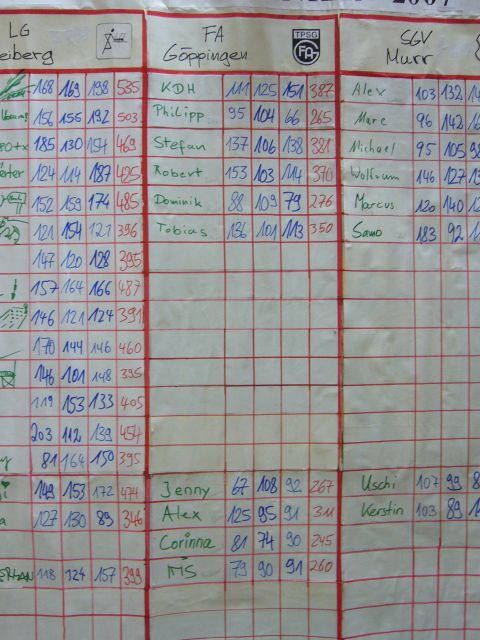 2007
LG
eiberg
168 169 198 535
156 155 192 503
185 130 154 469
124 114 187 425
152 159 174 485
121 154 121 396
147 120 128 395
157 164 166 487
146 121 124 391
170 144 146 460
146 101 148 395
119 153 133 405
203 112 139 454
81 164 150 395
149 153 172 474
127 130 89 346
118 124 157 399
FA
Göppingen
TPSG
FAG
KDH 111 125 151 387
Philipp 95 104 66 265
Stefan 137 106 138 381
Robert 153 103 114 370
Dominik 88 109 79 276
Tobias 136 101 113 350
Jenny 67 108 92 267
Alex 125 95 91 311
Corinna 81 74 90 245
79 90 91 260
SGV
Murr
Alex 103 132
Marc 96 142
Michael 95 105
Wolfram 146 127
Marcus 120 140
Samo 183 92
Uschi 107 99
Kerstin 103 89